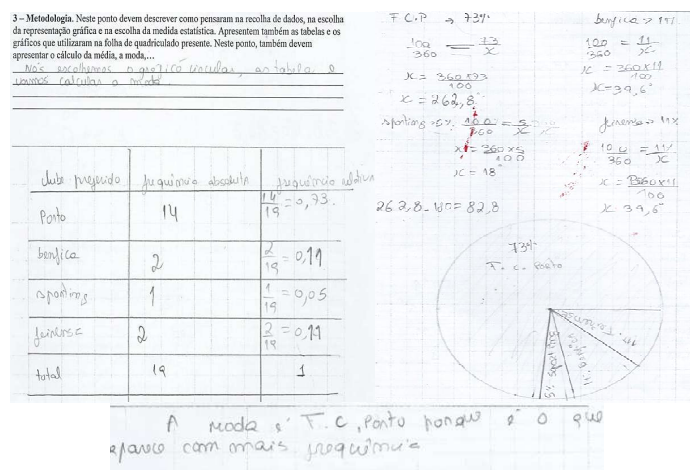 3 – Metodologia. Neste ponto devem descrever como pensaram na recolha de dados, na escolha
da representação gráfica e na escolha da medida estatística. Apresentem também as tabelas e os
gráficos que utilizaram na folha de quadriculado presente. Neste ponto, também devem
apresentar o cálculo da média, a moda,...
Nós escolhemos o grafico circular, a tabela e
vamos calcular a moda.
clube preferido frequência absoluta frequência relativa
Porto 14 14/19 = 0,73.
benfica 2 2/19 = 0,11
sporting 1 1/19 = 0,05
feirense 2 2/19 = 0,11
total 19 1
F C.P → 73%
100/360 = 73/x
x = 360×73/100
x = 262,8°
benfica → 11%
100/360 = 11/x
x = 360×11/100
x = 39,6°
sporting → 5%
100/360 = 5/x
x = 360×5/100
x = 18°
feirense → 11%
100/360 = 11/x
x = 360×11/100
x 39,6°
262,8-180=82,8
73%
F. C. Porto
11% Feirense
11% Benfica
5%
A moda é F.C. Porto porque é o que
aparece com mais frequência